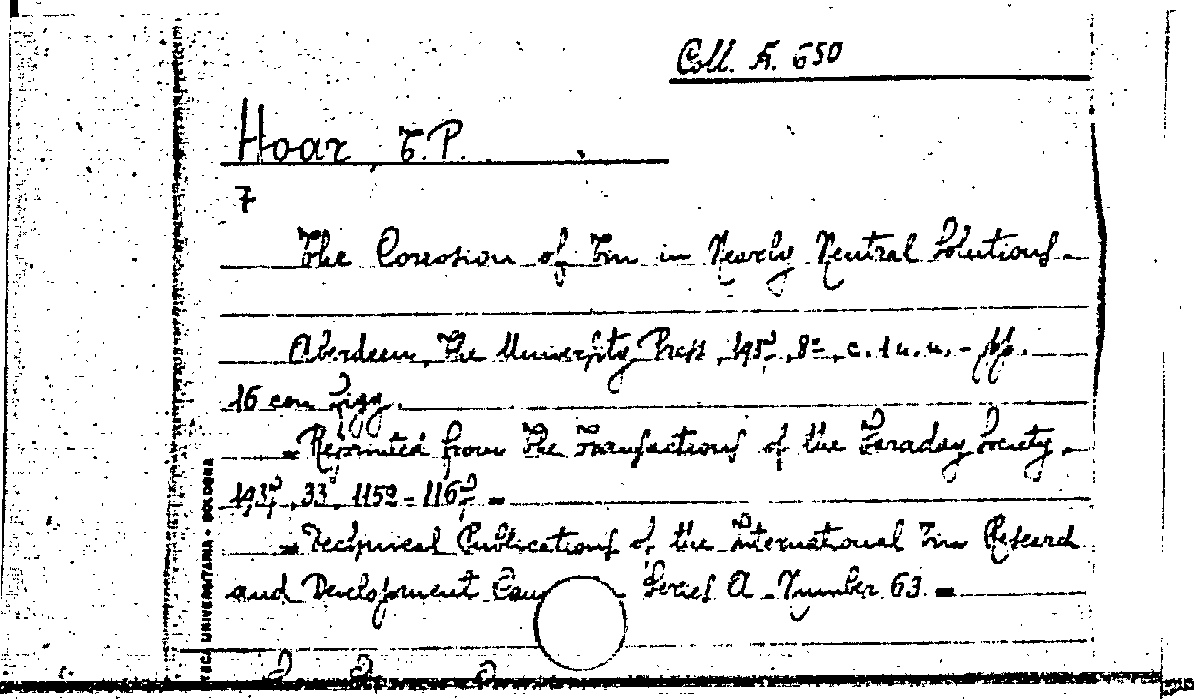 Coll. A. 650
Hoar, T.P.
7
The Corrosion of Tin in Nearly Neutral Solutions.
Aberdeen, The University Press, 1937, 8°, c. 1 n. n. - pp.
16 con figg.
= Reprinted from The Transactions of the Faraday Society.
1937, 33, 1152 - 1167 =
= Technical Publications of the International Tin Research
and Development Coun Series A - Number 63. =
TECA UNIVERSITARIA - BOLOGNA